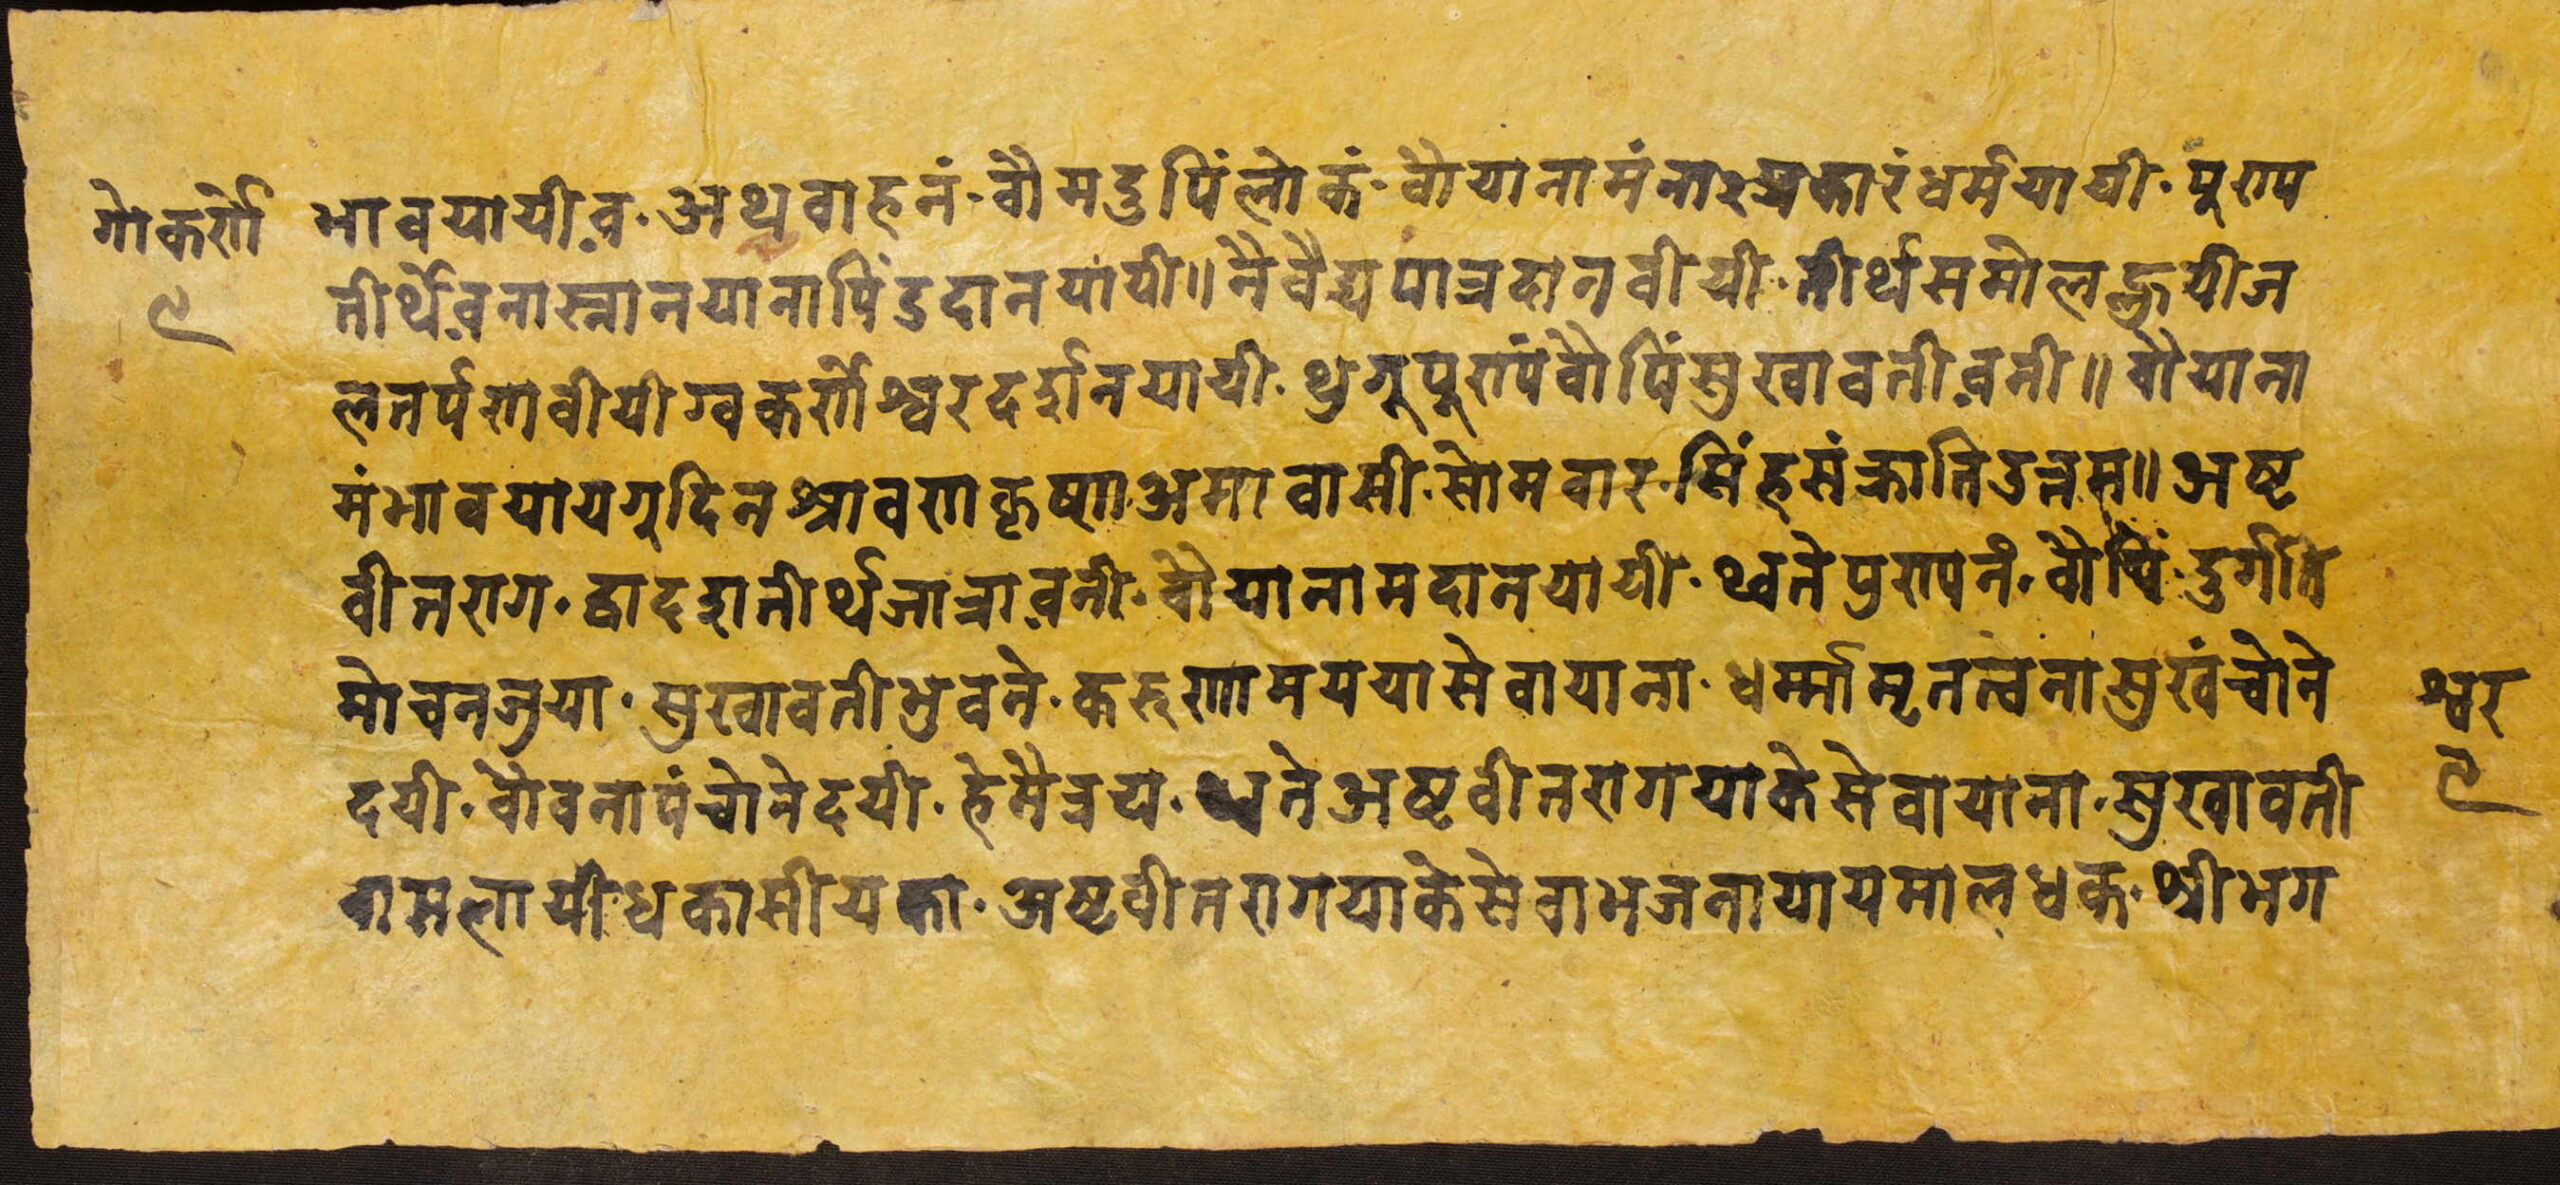 गोकर्णे भावयायीव॰ अथवाहनं॰ वौमदुपिंलोकं॰ वौयानामंनारप्रकारंधर्मयायी॰ पुराप
९ तीर्थेवनास्नानयानापिंडदानयायी॥ नैवैद्यपात्रदानवीयी॰ तीर्थसमोलह्नुयीज
लतर्पणवीयीग्वकर्णेश्वरदर्शनयायी॰ थुगूपूरापंवौपिंसुखावतीवनी॥ वौयाना
मंभावयायगूदिनश्रावणकृष्ण अमावासी॰ सोमवार॰ सिंहसंक्रान्तिउन्नस॥ अष्ट
वीतराग॰ द्वादशतीर्थजात्रावनी॰ वौयानामदानयायी॰ थ्वतेपुरापनं॰ वौपिं॰ दुर्गति
मोचनजुया॰ सुखावतीभुवने॰ करुणामययासेवायाना॰ धर्म्मामृतत्वनासुखंच्वोने
दयी॰ वोवनापंचोनेदयी॰ हेमैत्रय॰ थ्वतेअष्टवीतरागयाकेसेवायाना॰ सुखावती
वासलायीधकासीयका॰ अष्टवीतरागयाकेसेवाभजनायायमालधक॰ श्रीभग
श्वर
९